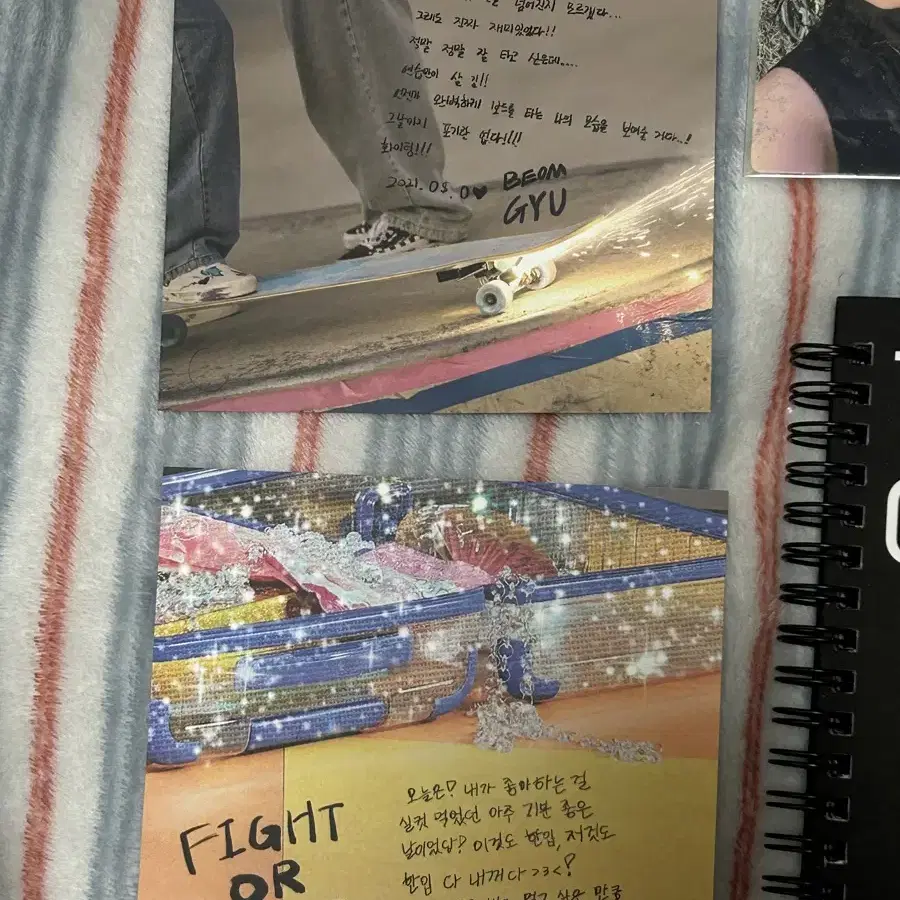 넘어진지 모르겠다...
그래도 진짜 재미있었다!!
정말 정말 잘 타고 싶은데....
연습만이 살 길!!
언젠가 완벽하게 보드를 타는 나의 모습을 보여줄 거다..!
그날까지 포기란 없다!!!!
화이팅!!!
2021.08.0♥ BEOM
GYU
오늘은? 내가 좋아하는 걸
실컷 먹었던 아주 기분 좋은
날이었답? 이것도 한입, 저것도
한입 다 내꺼다 >3<?
먹고 싶은 만큼
FIGHT
OR